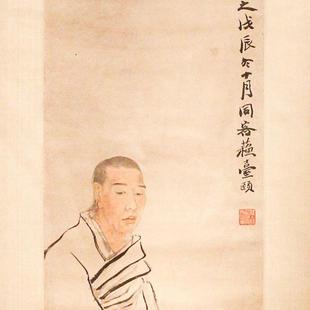 之戊辰冬十月同客蘓臺頤